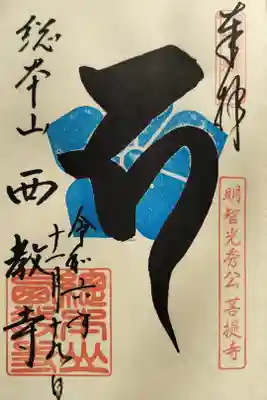 奉拝
明智光秀公 菩提寺
令和二年
十一月十九日
総本山 西教寺